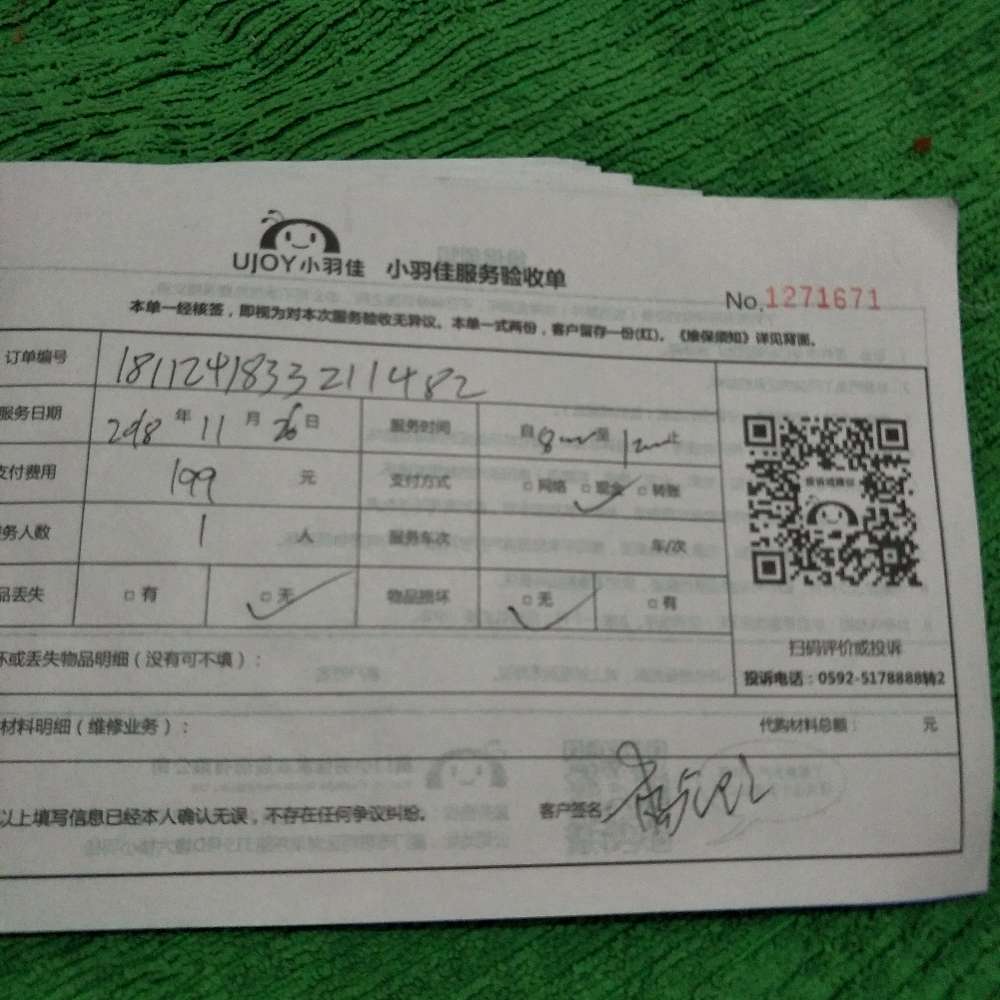 UJOY小羽佳 小羽佳服务验收单
No.1271671
本单一经核签，即视为对本次服务验收无异议。本单一式两份，客户留存一份(红)。《维保须知》详见背面。
订单编号 1811241833211482
服务日期 2018 年 11 月 26 日 服务时间 自 8 至 12 止
支付费用 199 元 支付方式 □ 网络 □ 现金 □ 转账
务人数 1 人 服务车次 车/次
品丢失 □ 有 □ 无 物品损坏 □ 无 □ 有
扫码评价或投诉
投诉电话：0592-5178888转2
坏或丢失物品明细（没有可不填）：
材料明细（维修业务）： 代购材料总额： 元
以上填写信息已经本人确认无误，不存在任何争议纠纷。 客户签名